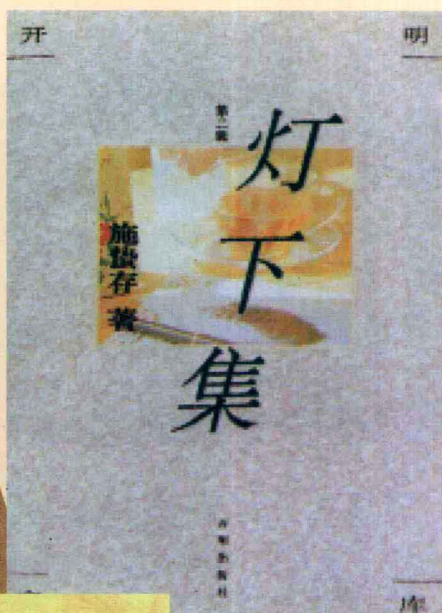 开 明
第二辑
灯下集
施蛰存 著
开明出版社
库